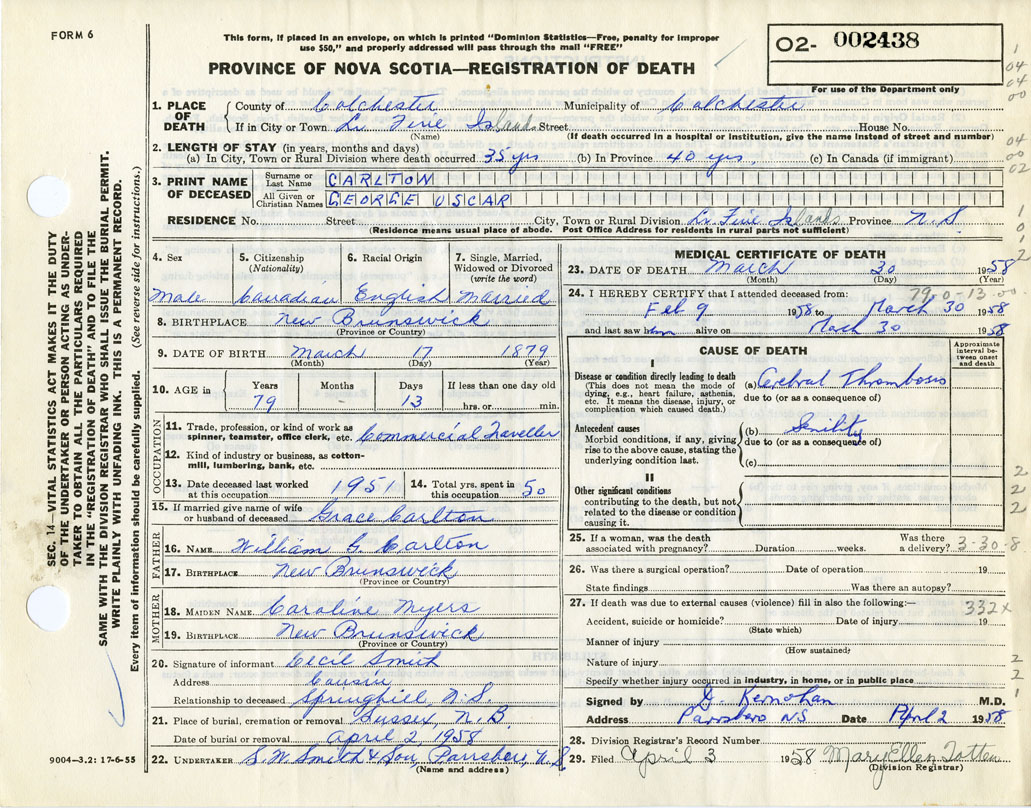 FORM 6
This form, if placed in an envelope, on which is printed "Dominion Statistics—Free, penalty for improper
use $50," and properly addressed will pass through the mail "FREE"
PROVINCE OF NOVA SCOTIA—REGISTRATION OF DEATH
O2- 002438
For use of the Department only
1. PLACE OF DEATH County of Colchester Municipality of Colchester
If in City or Town Lr. Five Islands Street House No.
(Name) (If death occurred in a hospital or institution, give the name instead of street and number)
2. LENGTH OF STAY (in years, months and days)
(a) In City, Town or Rural Division where death occurred 35 yrs (b) In Province 40 yrs. (c) In Canada (if immigrant)
3. PRINT NAME OF DECEASED Surname or Last Name CARLTON
All Given or Christian Names GEORGE OSCAR
RESIDENCE No. Street City, Town or Rural Division Lr. Five Islands Province N.S.
(Residence means usual place of abode. Post Office Address for residents in rural parts not sufficient)
4. Sex 5. Citizenship (Nationality) 6. Racial Origin 7. Single, Married, Widowed or Divorced (write the word)
Male Canadian English Married
8. BIRTHPLACE New Brunswick
(Province or Country)
9. DATE OF BIRTH March 17 1879
(Month) (Day) (Year)
10. AGE in Years Months Days If less than one day old
79 - 13 hrs. or min.
OCCUPATION
11. Trade, profession, or kind of work as spinner, teamster, office clerk, etc. Commercial Traveller
12. Kind of industry or business, as cotton-mill, lumbering, bank, etc.
13. Date deceased last worked at this occupation 1951 14. Total yrs. spent in this occupation 50
15. If married give name of wife or husband of deceased Grace Carlton
FATHER
16. NAME William G. Carlton
17. BIRTHPLACE New Brunswick
(Province or Country)
MOTHER
18. MAIDEN NAME Caroline Myers
19. BIRTHPLACE New Brunswick
(Province or Country)
20. Signature of informant Cecil Smith
Address Cousin
Relationship to deceased Springhill, N.S.
21. Place of burial, cremation or removal Sussex, N.B.
Date of burial or removal April 2, 1958
22. UNDERTAKER S.W. Smith & Son, Parrsboro, N.S
(Name and address)
9004—3.2: 17-6-55
MEDICAL CERTIFICATE OF DEATH
23. DATE OF DEATH March 30 1958
(Month) (Day) (Year)
24. I HEREBY CERTIFY that I attended deceased from: 79-0-13-00
Feb 9 1958 to March 30 1958
and last saw him alive on March 30 1958
CAUSE OF DEATH
Approximate interval between onset and death
I
Disease or condition directly leading to death (a) Cerebral Thrombosis
(This does not mean the mode of dying, e.g., heart failure, asthenia, etc. It means the disease, injury, or complication which caused death.)
due to (or as a consequence of)
Antecedent causes (b) Senility
Morbid conditions, if any, giving rise to the above cause, stating the underlying condition last.
due to (or as a consequence of)
(c)
II
Other significant conditions
contributing to the death, but not related to the disease or condition causing it.
25. If a woman, was the death associated with pregnancy? Duration weeks. Was there a delivery? 3-30-8
26. Was there a surgical operation? Date of operation 19
State findings Was there an autopsy?
27. If death was due to external causes (violence) fill in also the following:— 332x
Accident, suicide or homicide? Date of injury 19
(State which)
Manner of injury
(How sustained)
Nature of injury
Specify whether injury occurred in industry, in home, or in public place
Signed by D. Kernohan M.D.
Address Parrsboro NS Date April 2 1958
28. Division Registrar's Record Number
29. Filed April 3 1958 Mary Ellen Totten
(Division Registrar)
SEC. 14—VITAL STATISTICS ACT MAKES IT THE DUTY
OF THE UNDERTAKER OR PERSON ACTING AS UNDER-
TAKER TO OBTAIN ALL THE PARTICULARS REQUIRED
IN THE "REGISTRATION OF DEATH" AND TO FILE THE
SAME WITH THE DIVISION REGISTRAR WHO SHALL ISSUE THE BURIAL PERMIT.
WRITE PLAINLY WITH UNFADING INK. THIS IS A PERMANENT RECORD.
Every item of information should be carefully supplied. (See reverse side for instructions.)
1
04
04
00
04
00
02
1
0
1
2
2
2
2
2
2
1